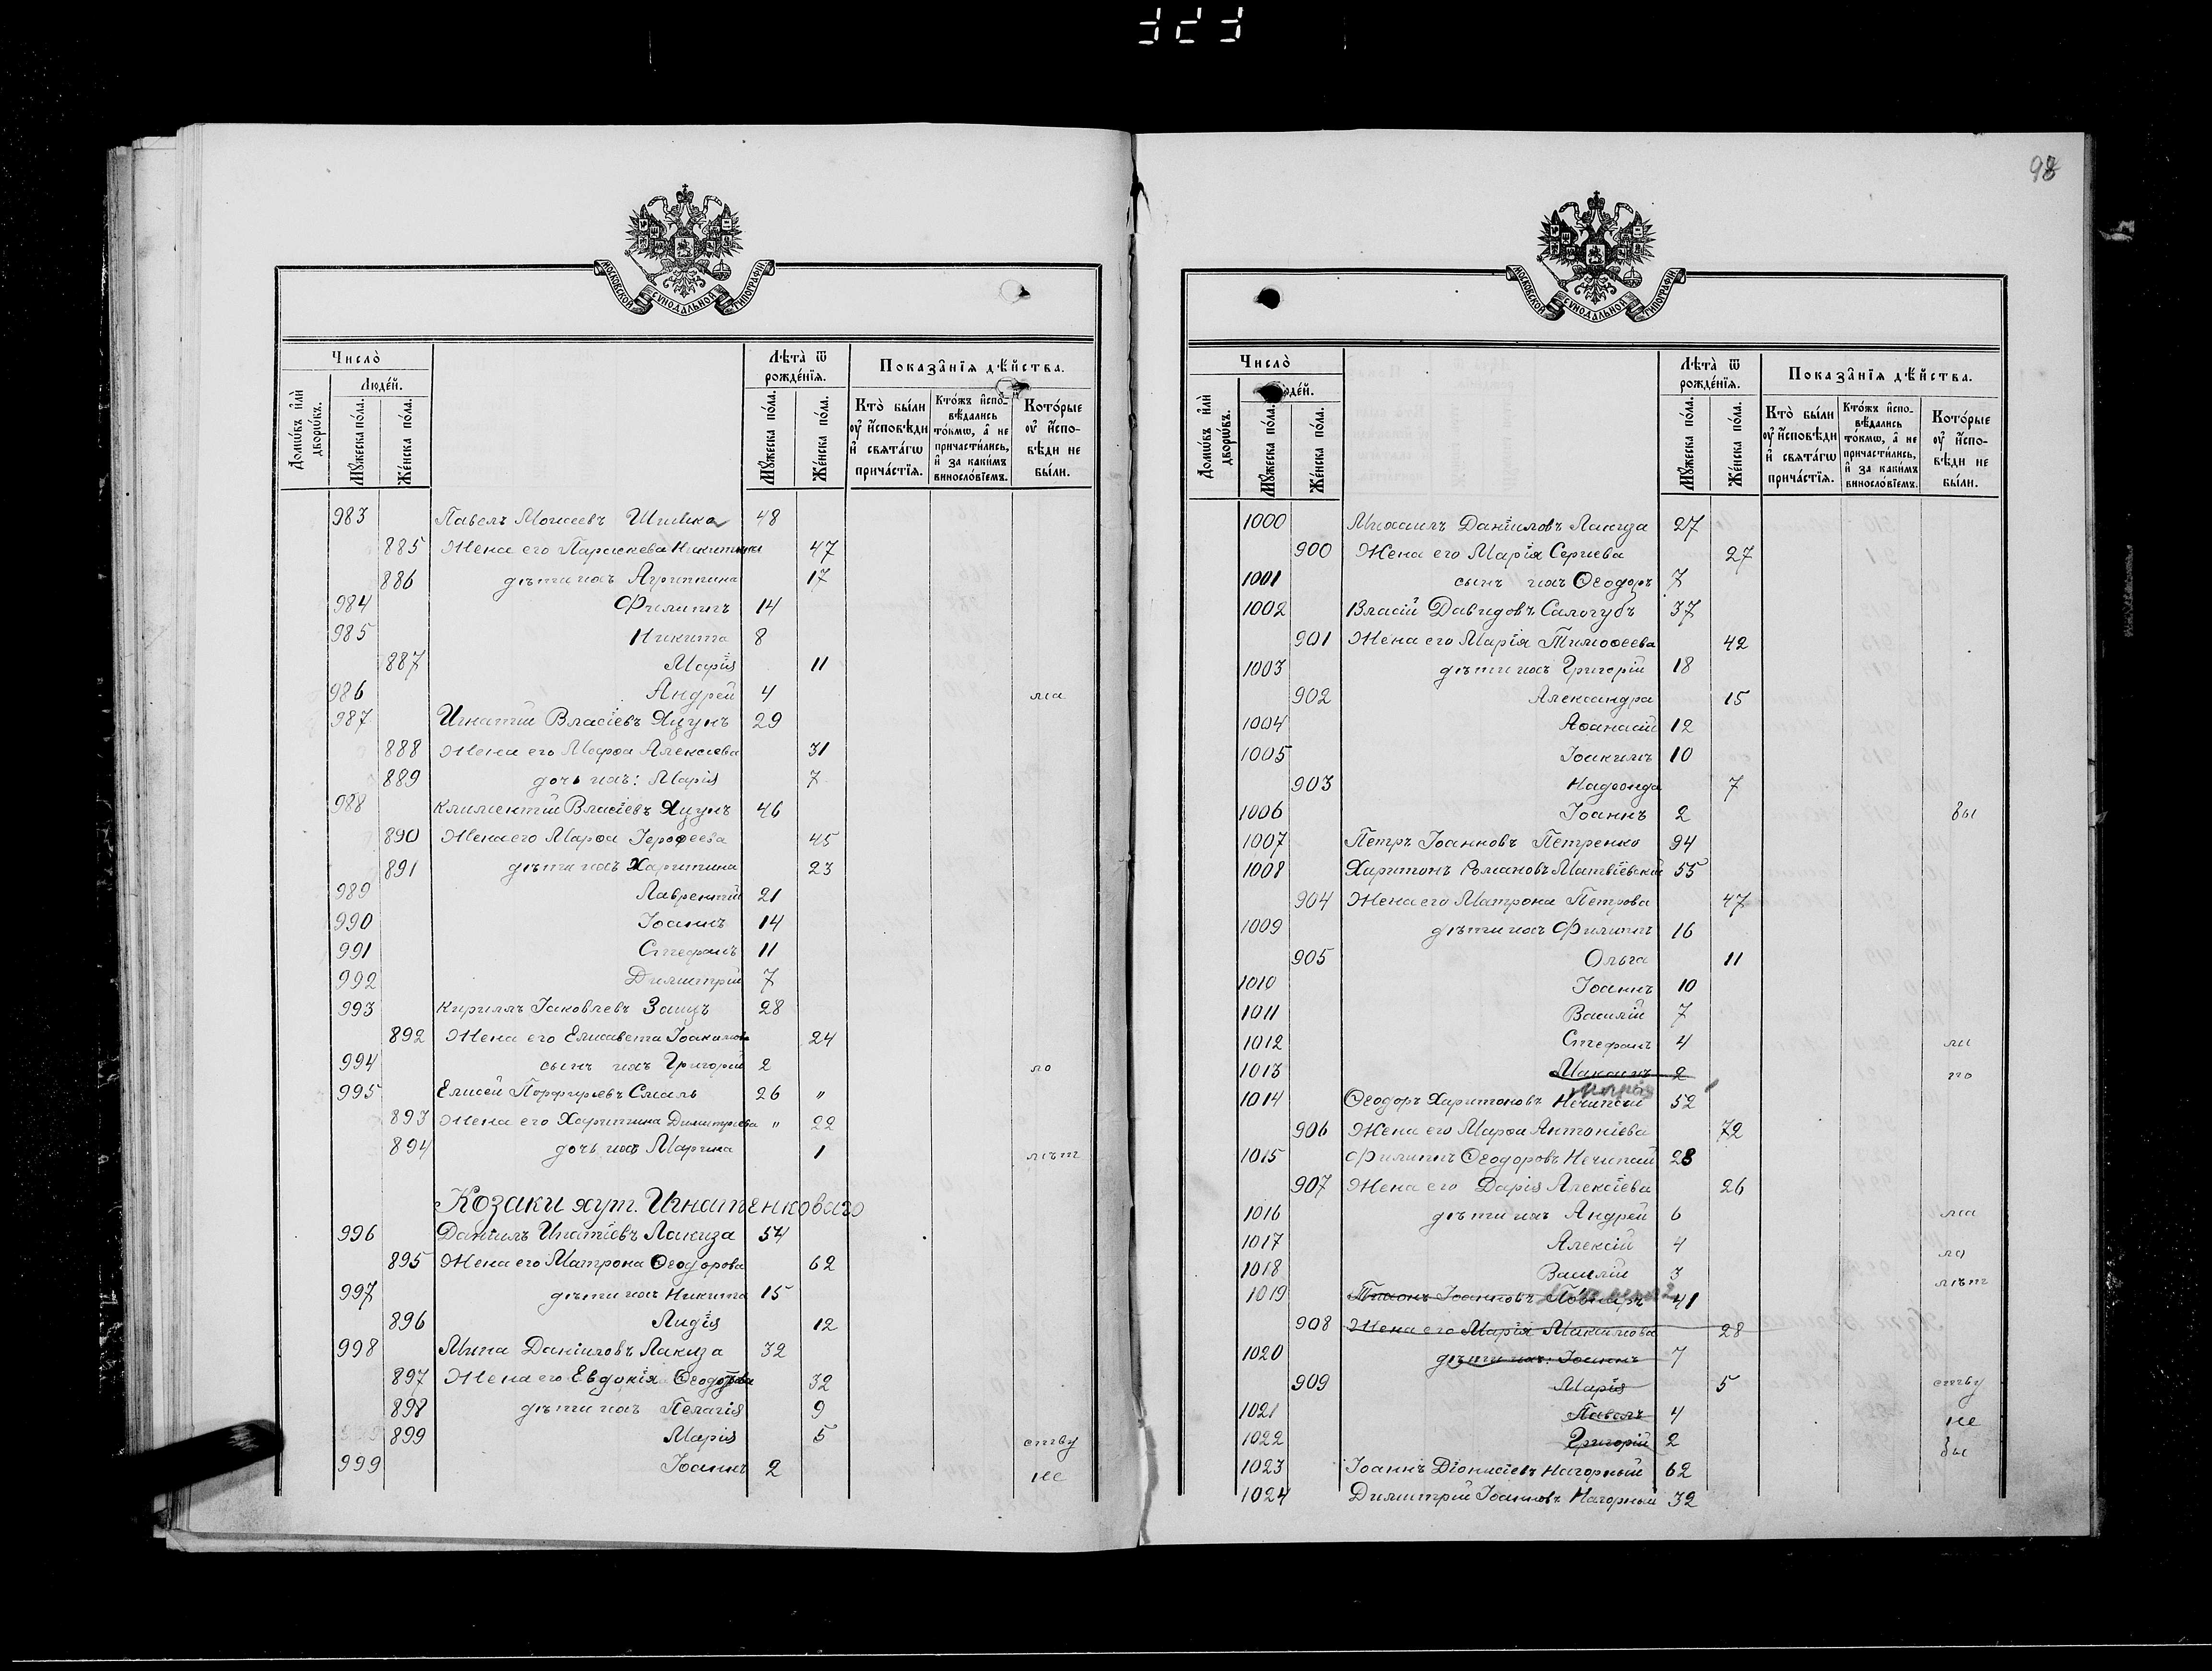 323
98
МОСКОВСКОЙ СѴНОДАЛЬНОЙ ТИПОГРАФІИ
Число̀
Людéй.
Домѡ́въ и҆лѝ дворѡ́въ.
Мꙋ́жеска по́ла.
Же́нска по́ла.
Лѣта̀ ѿ рожде́нїѧ.
Мꙋ́жеска по́ла.
Же́нска по́ла.
Показа̑нїѧ дѣ́йства.
Кто̀ бы́ли ᲂу҆ и҆сповѣ́ди и҆ свѧта́гѡ прича́стїѧ.
Кто́жъ и҆спо-вѣ́дались то́кмѡ, а҆ не причасти́лись, и҆ за каки́мъ винослові́емъ.
Кото́рые ᲂу҆ и҆спо-вѣ́ди не бы́ли.
983 Павелъ Моисеевъ 48
885 Жена его Параскева Никитина 47
886 дѣти ихъ Агриппина 17
984 Филиппъ 14
985 Никита 8
887 Марія 11
986 Андрей 4 ма
987 Игнатій Власіевъ Яцунъ 29
888 Жена его Марѳа Алексіева 31
889 дочь ихъ: Марія 7
988 Климентій Власіевъ Яцунъ 46
890 Жена его Марѳа Іерофеева 45
891 дѣти ихъ Харитина 23
989 Лаврентій 21
990 Іоаннъ 14
991 Стефанъ 11
992 Димитрій 7
993 Кириллъ Іаковлевъ Заяцъ 28
892 Жена его Елисавета Іоакимова 24
994 сынъ ихъ Григорій 2 ло
995 Елисей Порфирьевъ Смаль 26 "
893 Жена его Харитина Димитріева " 22
894 дочь ихъ Марина 1 лѣт
Козаки хут. Игнатенковаго
996 Даніилъ Игнатіевъ Лакиза 54
895 Жена его Матрона Ѳеодорова 62
997 дѣти ихъ Никита 15
896 Лидія 12
998 Мина Даніиловъ Лакиза 32
897 Жена его Евдокія Ѳеодорова 32
898 дѣти ихъ Пелагія 9
899 Марія 5 ству
999 Іоаннъ 2 не
МОСКОВСКОЙ СѴНОДАЛЬНОЙ ТИПОГРАФІИ
Число̀
Людéй.
Домѡ́въ и҆лѝ дворѡ́въ.
Мꙋ́жеска по́ла.
Же́нска по́ла.
Лѣта̀ ѿ рожде́нїѧ.
Мꙋ́жеска по́ла.
Же́нска по́ла.
Показа̑нїѧ дѣ́йства.
Кто̀ бы́ли ᲂу҆ и҆сповѣ́ди и҆ свѧта́гѡ прича́стїѧ.
Кто́жъ и҆спо-вѣ́дались то́кмѡ, а҆ не причасти́лись, и҆ за каки́мъ винослові́емъ.
Кото́рые ᲂу҆ и҆спо-вѣ́ди не бы́ли.
1000 Михаилъ Даніиловъ Лакиза 27
900 Жена его Марія Сергиева 27
1001 сынъ ихъ Ѳеодоръ 7
1002 Власій Давидовъ Салогубъ 37
901 Жена его Марія Тимоѳеева 42
1003 дѣти ихъ Григорій 18
902 Александра 15
1004 Аѳанасій 12
1005 Іоакимъ 10
903 Надежда 7
1006 Іоаннъ 2 бы
1007 Петръ Іоанновъ Петренко 94
1008 Харитонъ Романовъ Матвіевскій 55
904 Жена его Матрона Петрова 47
1009 дѣти ихъ Филиппъ 16
905 Ольга 11
1010 Іоаннъ 10
1011 Василій 7
1012 Стефанъ 4 ли
1013 Максимъ 2 по
1014 Ѳеодоръ Харитоновъ Нечипай 52
906 Жена его Марѳа Антоніева 72
1015 Филиппъ Ѳеодоровъ Нечипай 28
907 Жена его Дарія Алексіева 26
1016 дѣти ихъ Андрей 6 ма
1017 Алексій 4 ло
1018 Василій 3 лѣт
1019 Тихонъ Іоанновъ 41
908 Жена его Марія Максимова 28
1020 дѣти ихъ: Іоаннъ 7
909 Марія 5 ству
1021 Павелъ 4 не
1022 Григорій 2 бы
1023 Іоаннъ Діонисіевъ Нагорный 62
1024 Димитрій Іоанновъ Нагорный 32